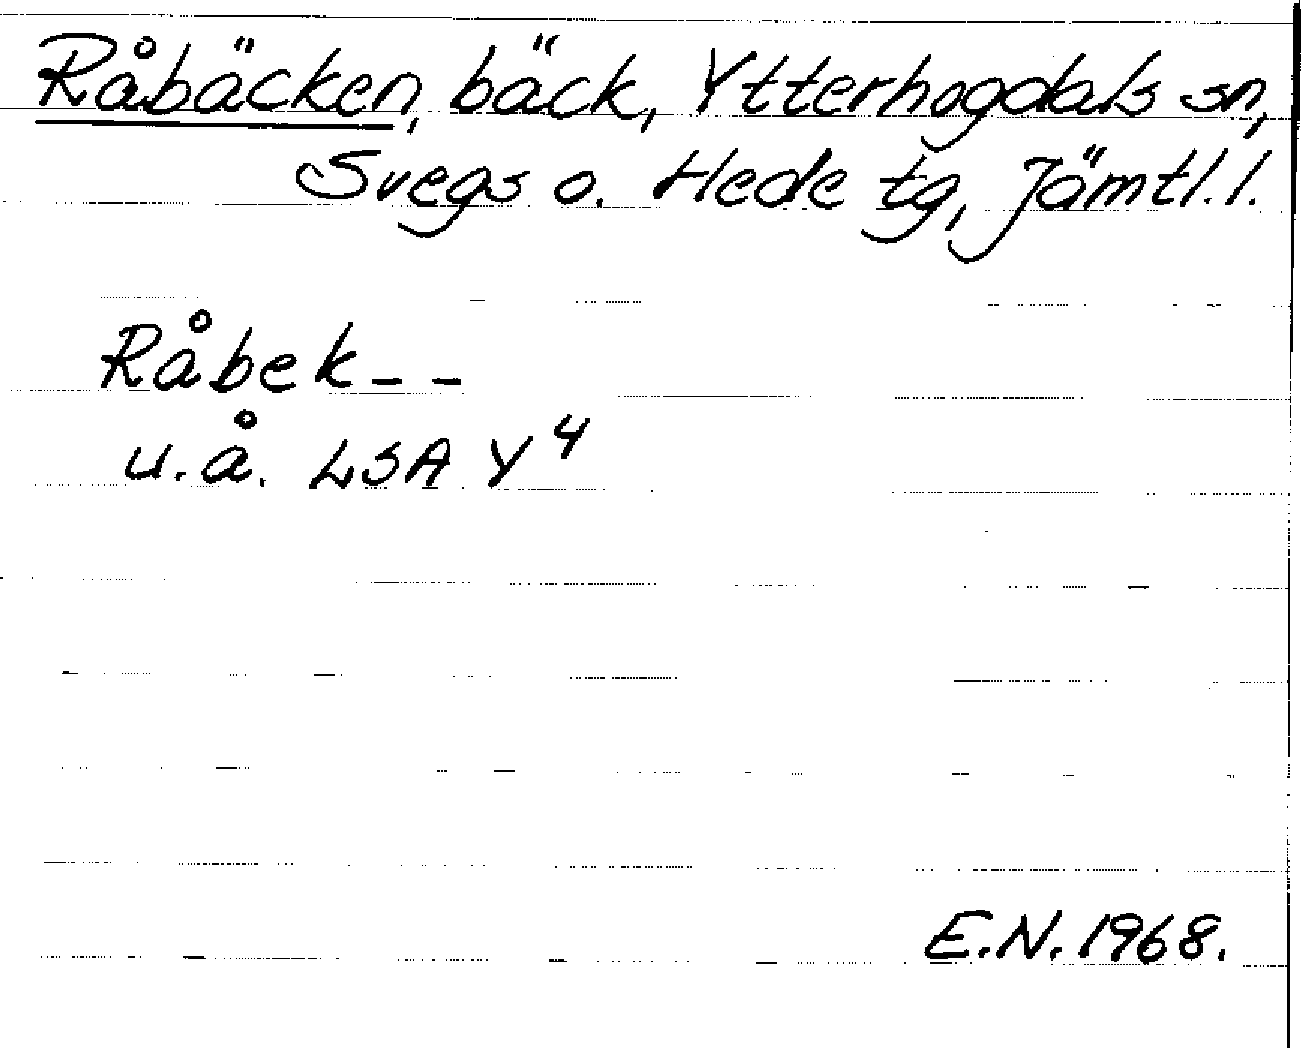 Råbäcken, bäck, Ytterhogdals sn,
Svegs o. Hede tg, Jämtl. l.
Råbek - -
u.å. LSA Y 4
E.N. 1968.